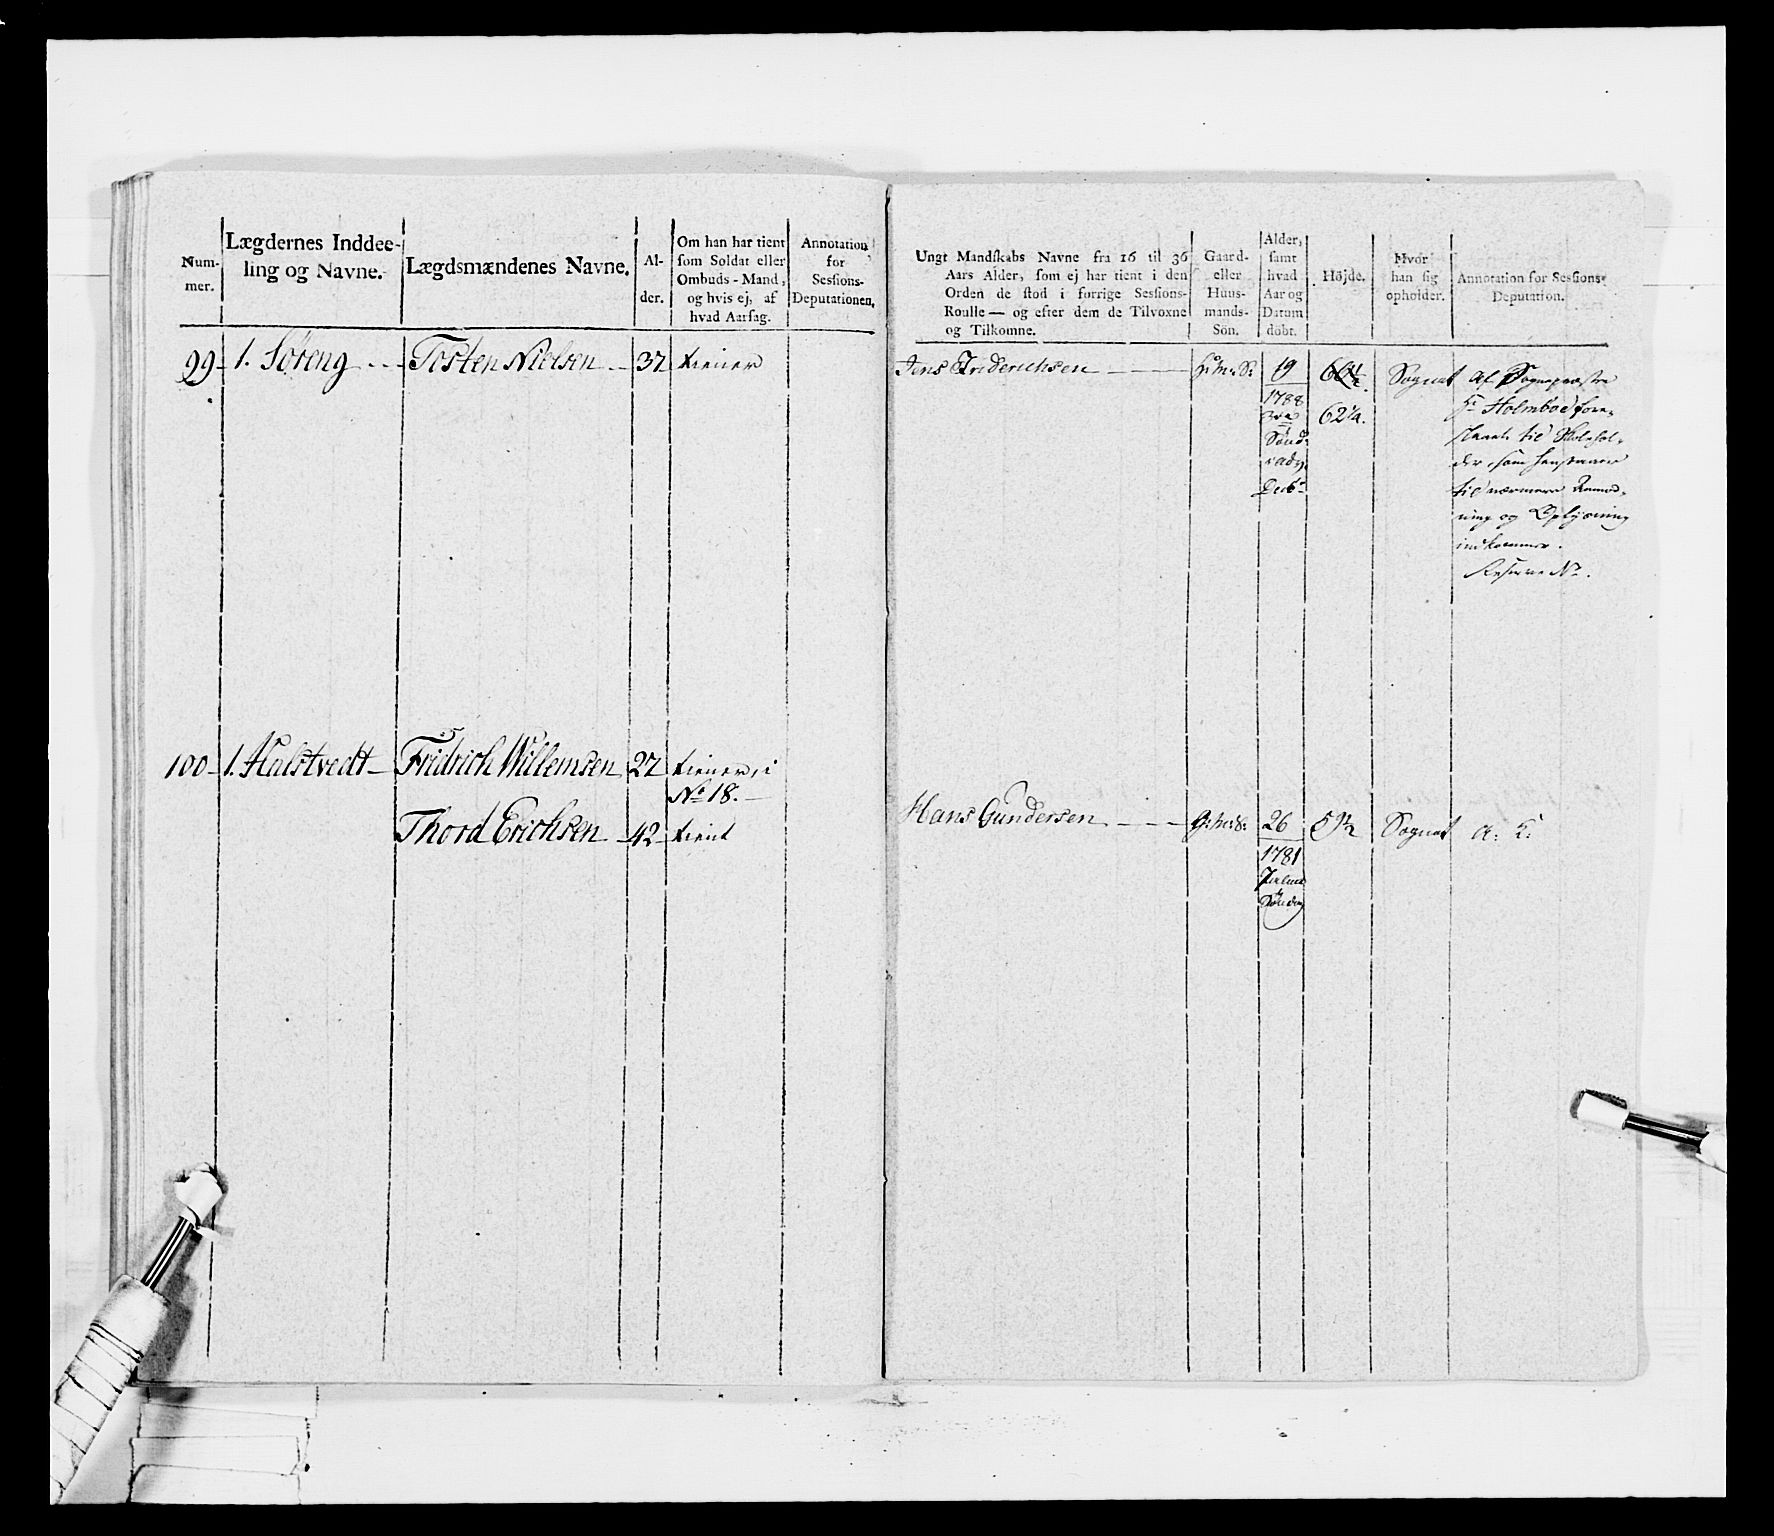 Num-
mer.
Lægdernes Inddee-
ling og Navne.
Lægdsmændenes Navne.
Al-
der.
Om han har tient
som Soldat eller
Ombuds-Mand,
og hvis ej, af
hvad Aarsag.
Annotation
for
Sessions-
Deputationen.
99 - 1. Söreng - - Tosten Nielsen - 37 tiener
100 - 1. Halstvedt - Fridrich Willemsen 27 tiener i
No 18. -
Thord Erichsen - 42 - tient
Ungt Mandskabs Navne fra 16 til 36
Aars Alder, som ej har tient i den
Orden de stod i forrige Sessions-
Roulle — og efter dem de Tilvoxne
og Tilkomne.
Gaard-
eller
Huus-
mands-
Sön.
Alder,
samt
hvad
Aar og
Datum
döbt.
Höjde.
Hvor
han sig
opholder.
Annotation for Sessions-
Deputation.
Jens Friderichsen - - - 19 Sognet af Sognepræsten
1788
62¼.
Hr Holmboe fore-
Sönd:
i adv.
Decbr
til nærmere
ning og Oplysning
indkommer.
Reserve No.
Hans Gundersen - - - G: m: S: 26 Sognet a: K:
1781